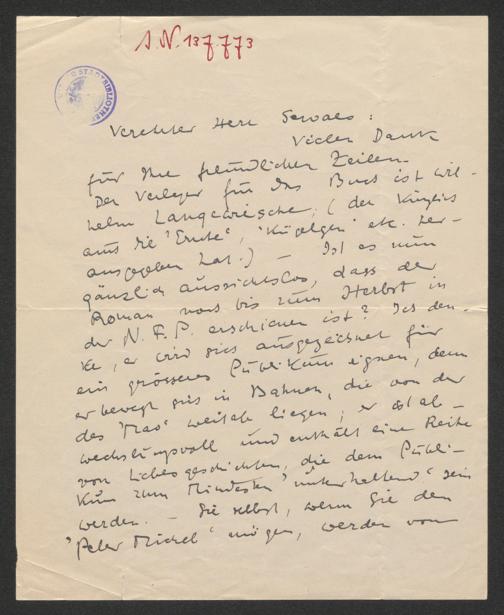 J.N. 137.773
STADTBIBLIOTHEK
Verehrter Herr Servaes:
Vielen Dank
für Ihre freundlichen Zeilen.
Der Verleger für das Buch ist Wil-
helm Langewiesche, (der kürzlich
aus die "Ernte", "Kügelgen" etc. her-
ausgegeben hat.) – Ist es nun
gänzlich aussichtslos, dass der
Roman noch bis zum Herbst in
der N. F. P. erschienen ist? Ich den-
ke, er wird sich ausgezeichnet für
ein grösseres Publikum eignen, denn
er bewegt sich in Bahnen, die von der
des "Mao" weitab liegen; er ist ab-
wechslungsvoll und enthält eine Reihe
von Liebesgeschichten, die dem Publi-
kum zum Mindesten "unterhaltend" sein
werden. – Sie selbst, wenn Sie den
"Peter Michel" mögen, werden von